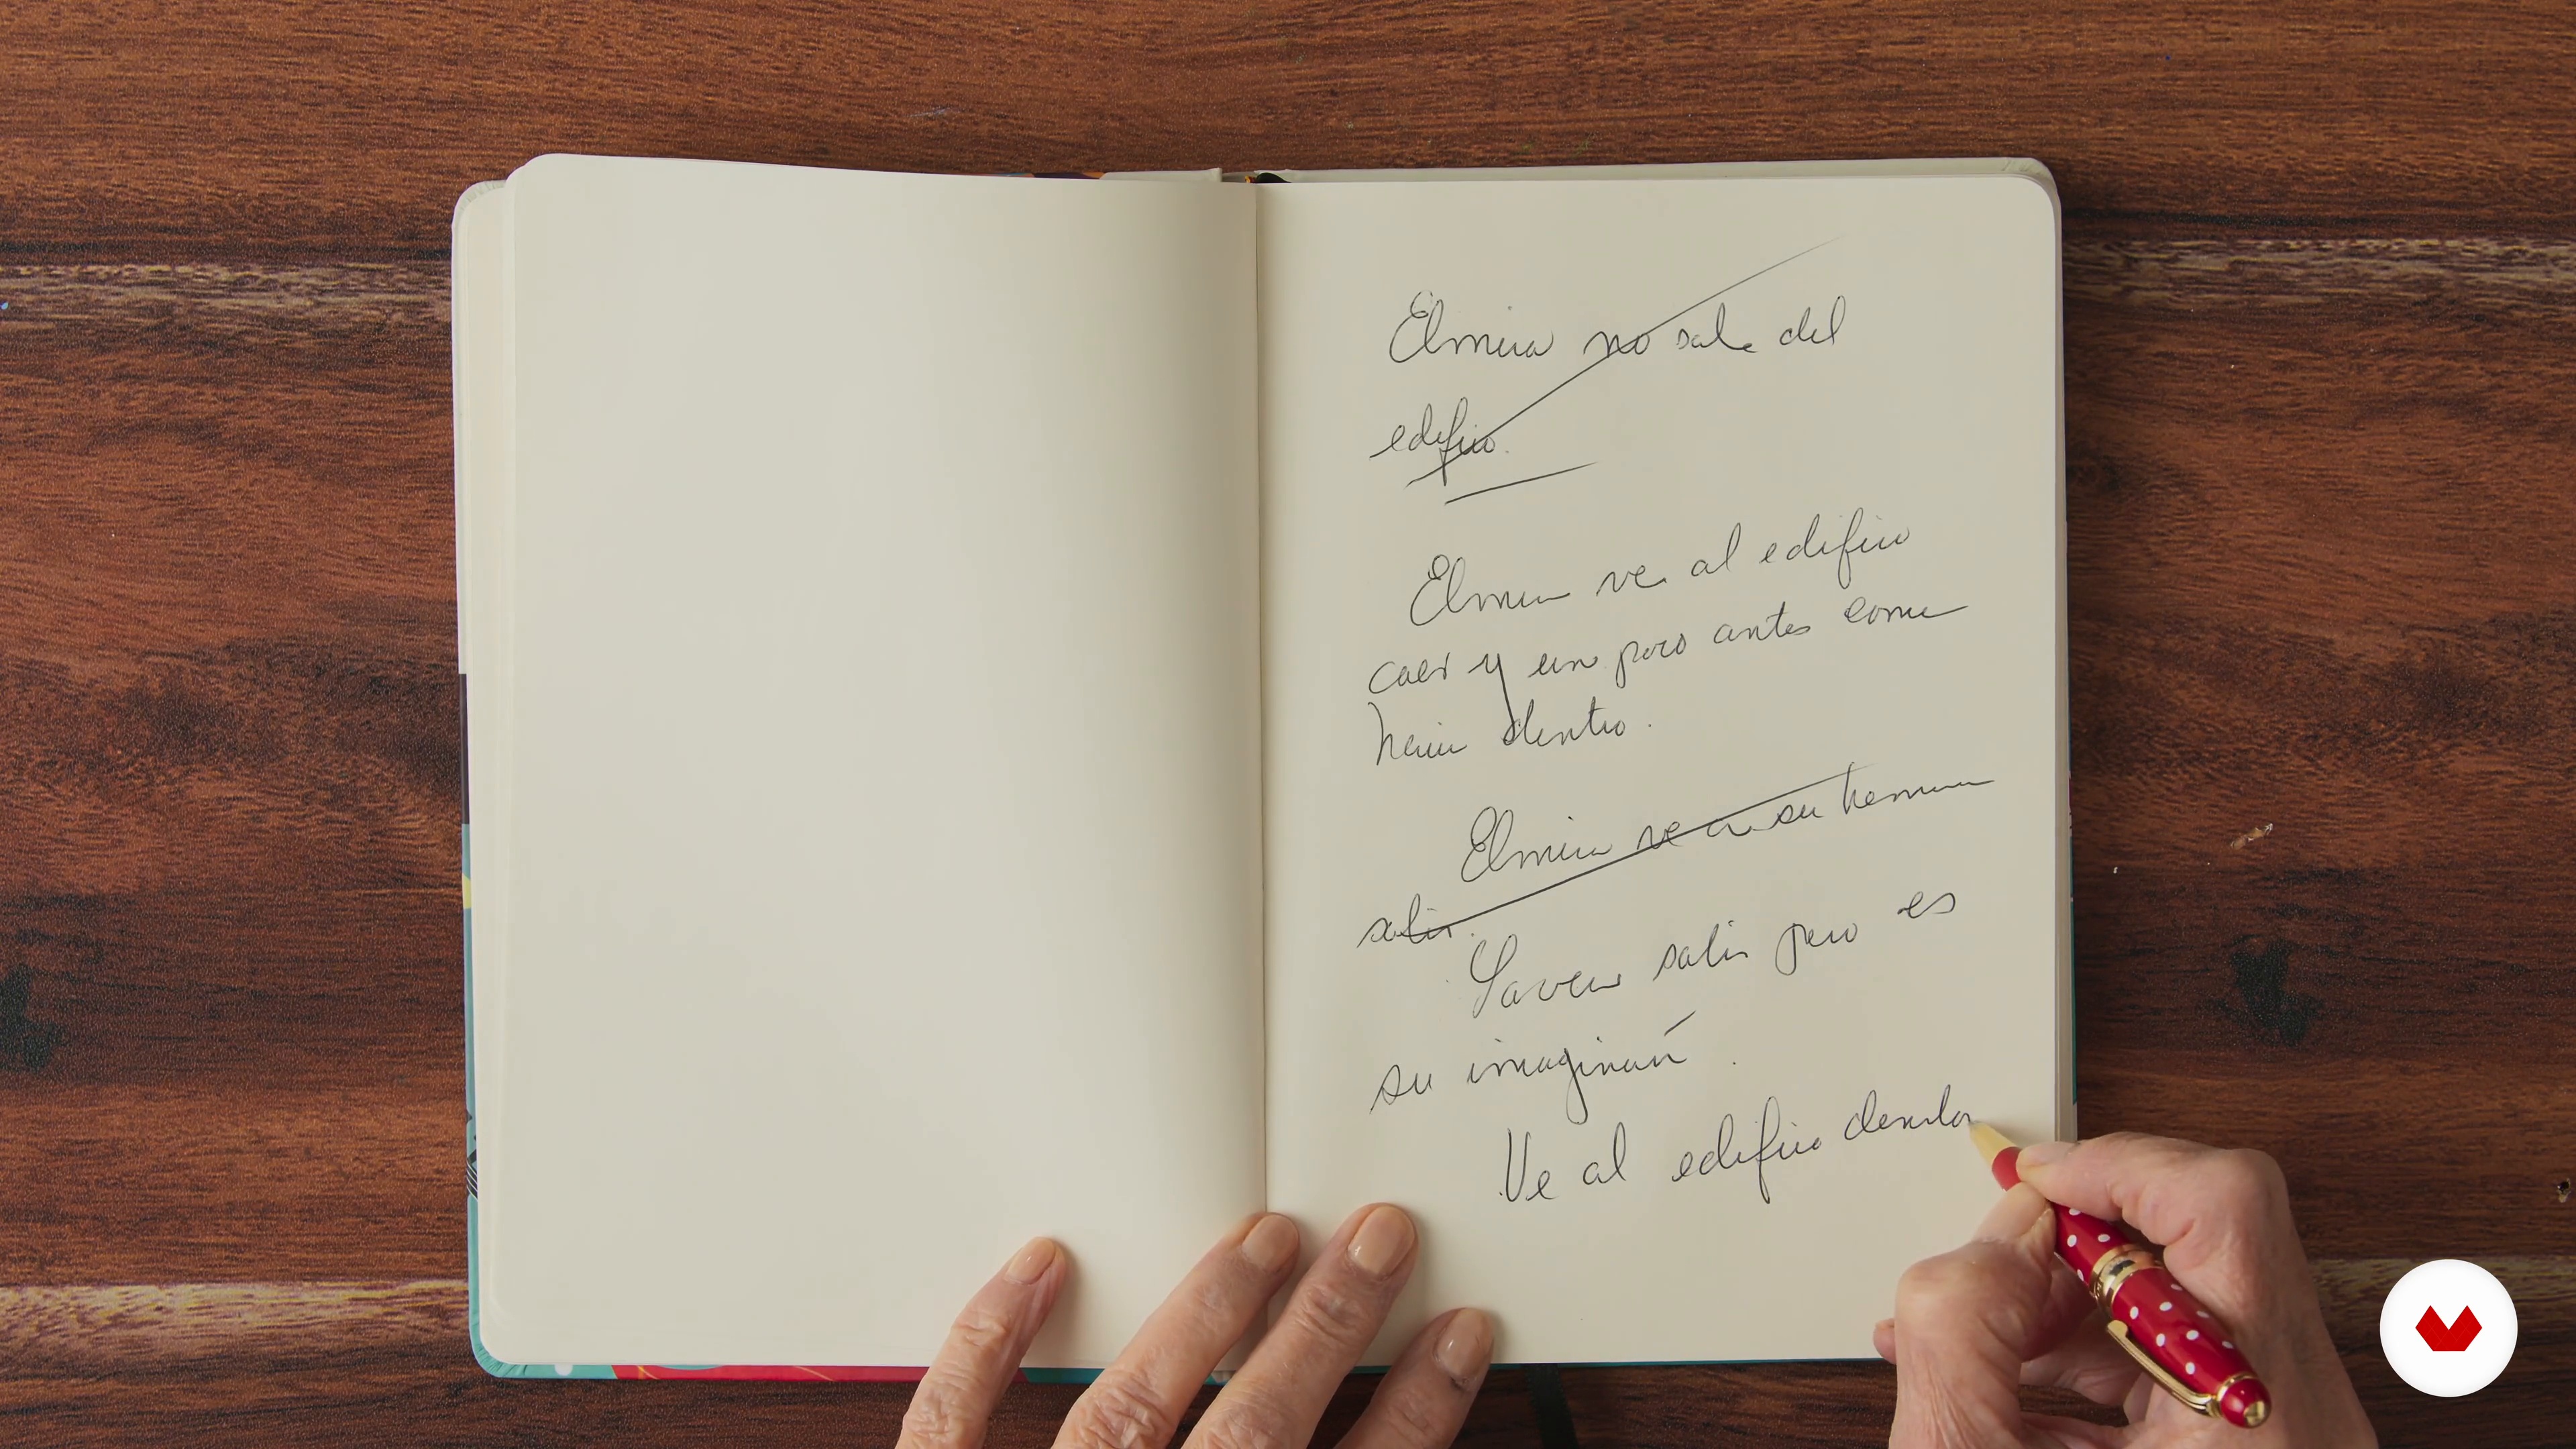 Elmira no sale del
edificio.
Elmira ve al edificio
caer y un poco antes corre
hacia dentro.
Elmira ve a su hermana
salir.
La ve salir pero es
su imaginación.
Ve al edificio